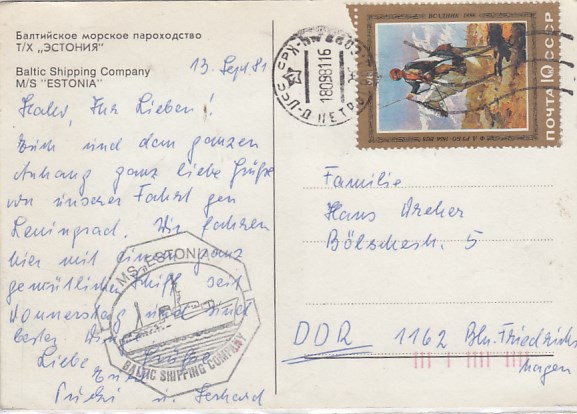 Балтийское морское пароходство
Т/Х „ЭСТОНИЯ"
Baltic Shipping Company
M/S "ESTONIA"
13. Sept 81
Hallo, Ihr Lieben!
Euch und dem ganzen
Anhang ganz liebe Grüße
von unserer Fahrt gen
Leningrad. Wir fahren
hier mit einem ganz
gemütlichen Schiff seit
Donnerstag und sind
Liebe Grüße
Eure
u. Gerhard
MS „ESTONIA"
BALTIC SHIPPING COMPANY
18098116
ПОЧТА 10 СССР
Familie
Hans Dreher
Bölschestr. 5
DDR 1162 Bln. Friedrichs
hagen